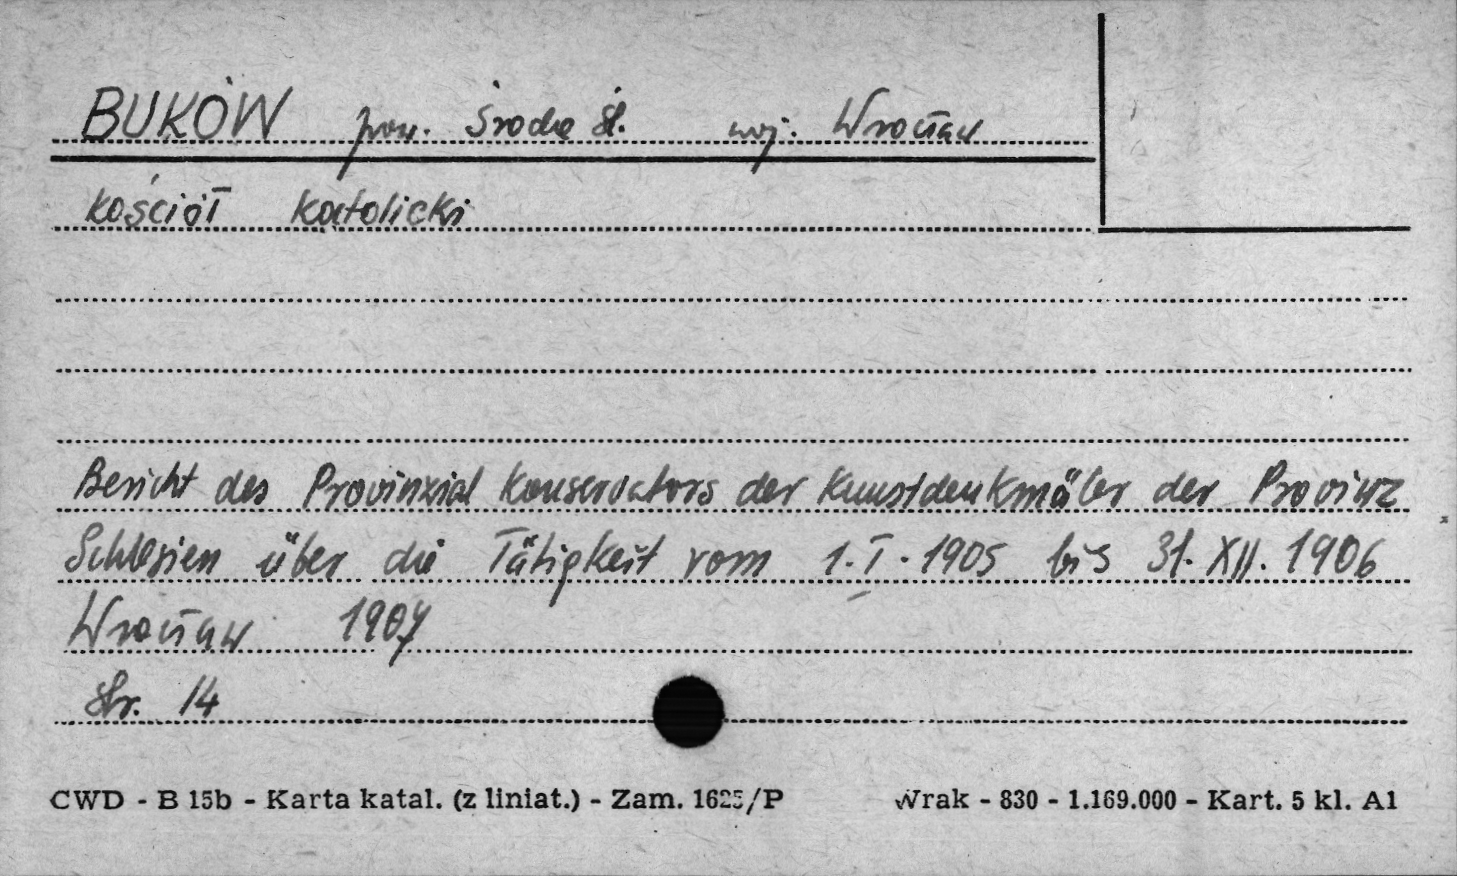 BUKÓW pow. Środa Śl. woj. Wrocław
Kościół katolicki
Bericht des Provinzial Konservators der Kunstdenkmäler der Provinz
Schlesien über die Tätigkeit vom 1.I.1905 bis 31.XII.1906
Wrocław 1907
Str. 14
CWD - B 15b - Karta katal. (z liniat.) - Zam. 1625/P Wrak - 830 - 1.169.000 - Kart. 5 kl. A1